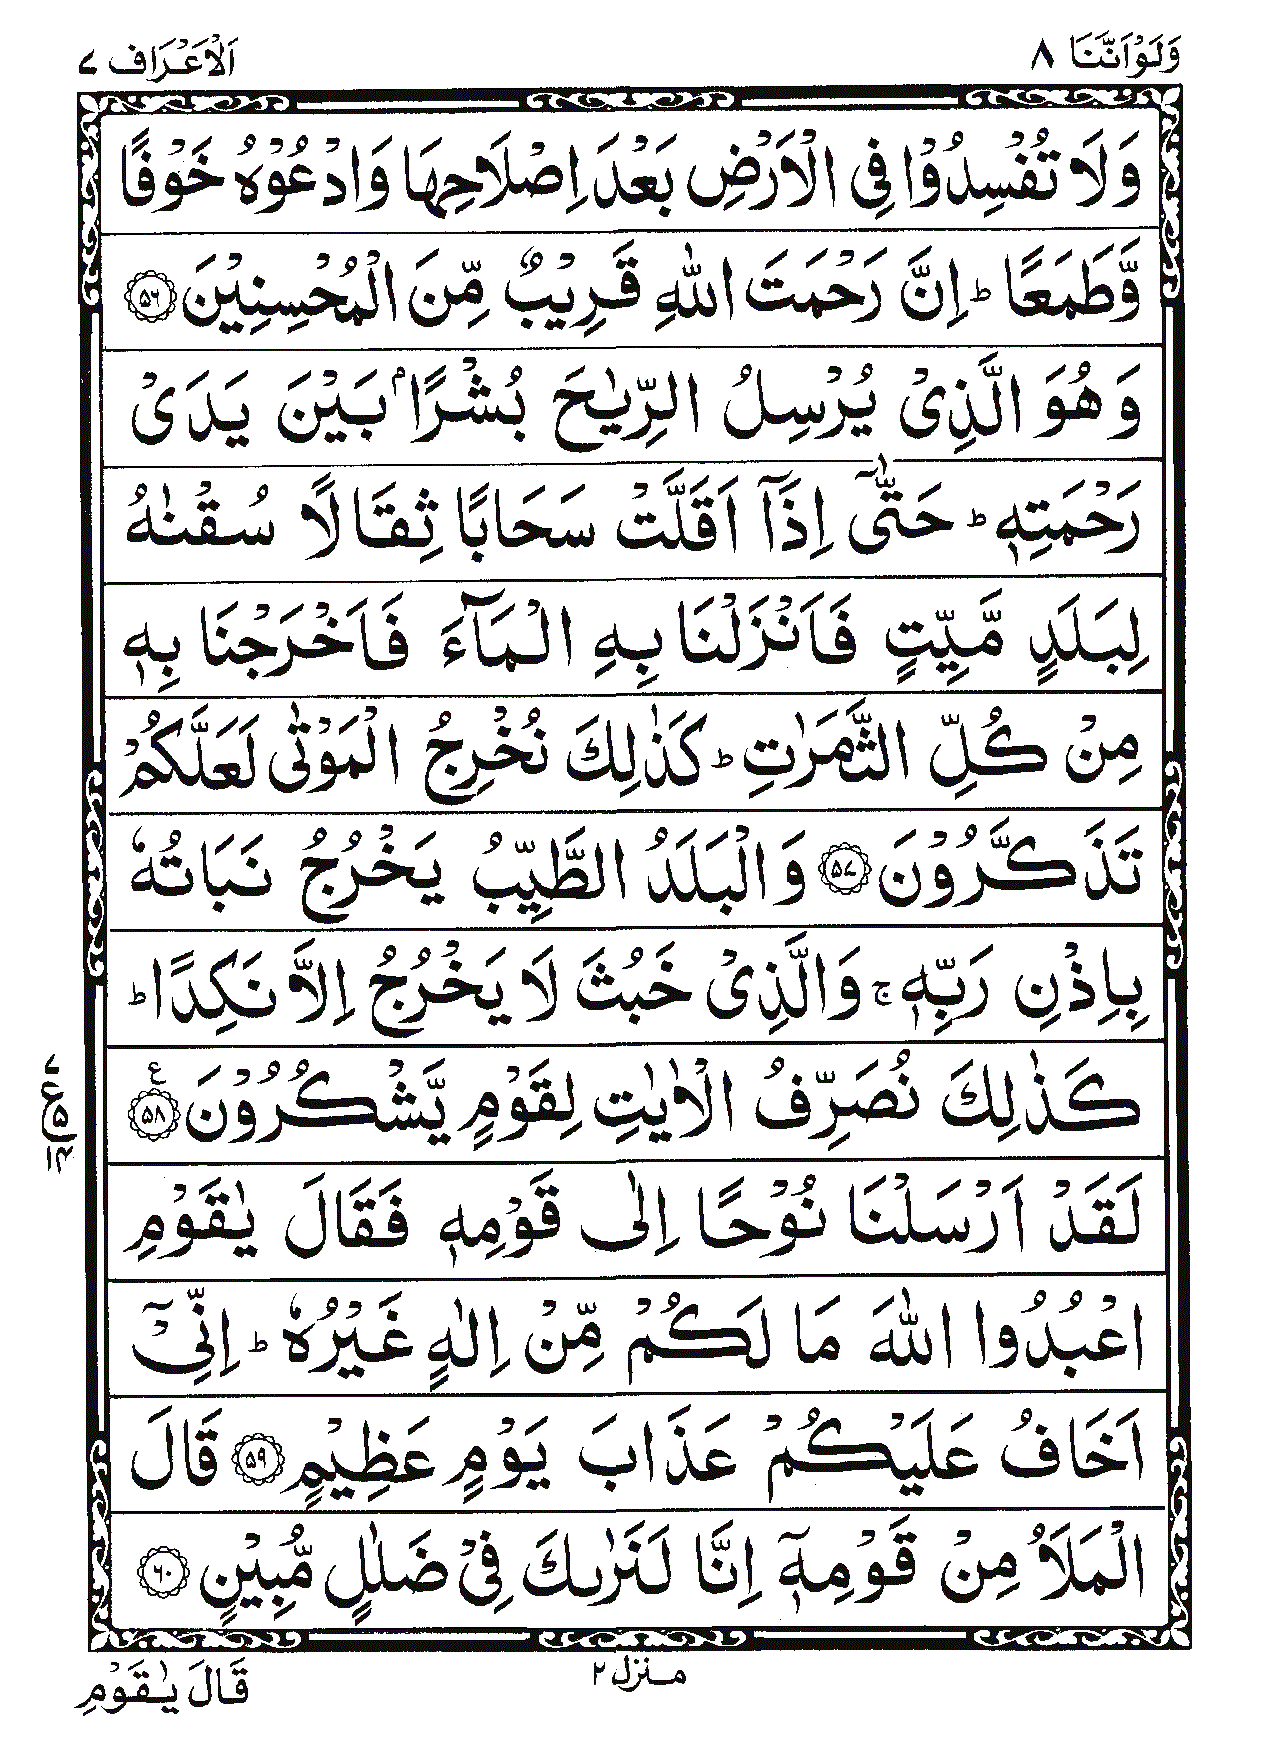 وَلَوْاَنَّنَا ٨
اَلْاَعْرَاف ٧
وَلَا تُفْسِدُوْا فِی الْاَرْضِ بَعْدَ اِصْلَاحِهَا وَادْعُوْهُ خَوْفًا
وَّطَمَعًا ؕ اِنَّ رَحْمَتَ اللّٰهِ قَرِیْبٌ مِّنَ الْمُحْسِنِیْنَ ﴿۵۶﴾
وَ هُوَ الَّذِیْ یُرْسِلُ الرِّیٰحَ بُشْرًۢا بَیْنَ یَدَیْ
رَحْمَتِهٖ ؕ حَتّٰۤی اِذَاۤ اَقَلَّتْ سَحَابًا ثِقَالًا سُقْنٰهُ
لِبَلَدٍ مَّیِّتٍ فَاَنْزَلْنَا بِهِ الْمَآءَ فَاَخْرَجْنَا بِهٖ
مِنْ كُلِّ الثَّمَرٰتِ ؕ كَذٰلِكَ نُخْرِجُ الْمَوْتٰی لَعَلَّكُمْ
تَذَكَّرُوْنَ ﴿۵۷﴾ وَالْبَلَدُ الطَّیِّبُ یَخْرُجُ نَبَاتُهٗ
بِاِذْنِ رَبِّهٖ ۚ وَالَّذِیْ خَبُثَ لَا یَخْرُجُ اِلَّا نَكِدًا ؕ
كَذٰلِكَ نُصَرِّفُ الْاٰیٰتِ لِقَوْمٍ یَّشْكُرُوْنَ ﴿۵۸﴾ ع
٧
ع ۵
١٤
لَقَدْ اَرْسَلْنَا نُوْحًا اِلٰی قَوْمِهٖ فَقَالَ یٰقَوْمِ
اعْبُدُوا اللّٰهَ مَا لَكُمْ مِّنْ اِلٰهٍ غَیْرُهٗ ؕ اِنِّیْۤ
اَخَافُ عَلَیْكُمْ عَذَابَ یَوْمٍ عَظِیْمٍ ﴿۵۹﴾ قَالَ
الْمَلَاُ مِنْ قَوْمِهٖۤ اِنَّا لَنَرٰىكَ فِیْ ضَلٰلٍ مُّبِیْنٍ ﴿۶۰﴾
منزل ٢
قَالَ یٰقَوْمِ